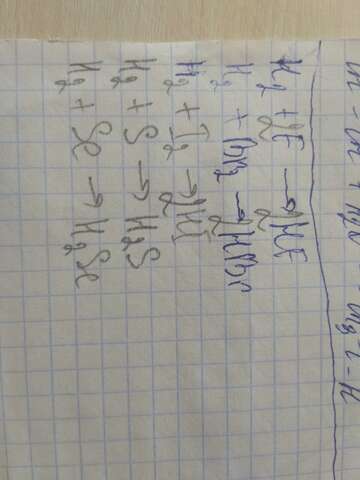 H₂ + F₂ → 2HF
H₂ + Br₂ → 2HBr
H₂ + I₂ → 2HI
H₂ + S → H₂S
H₂ + Se → H₂Se